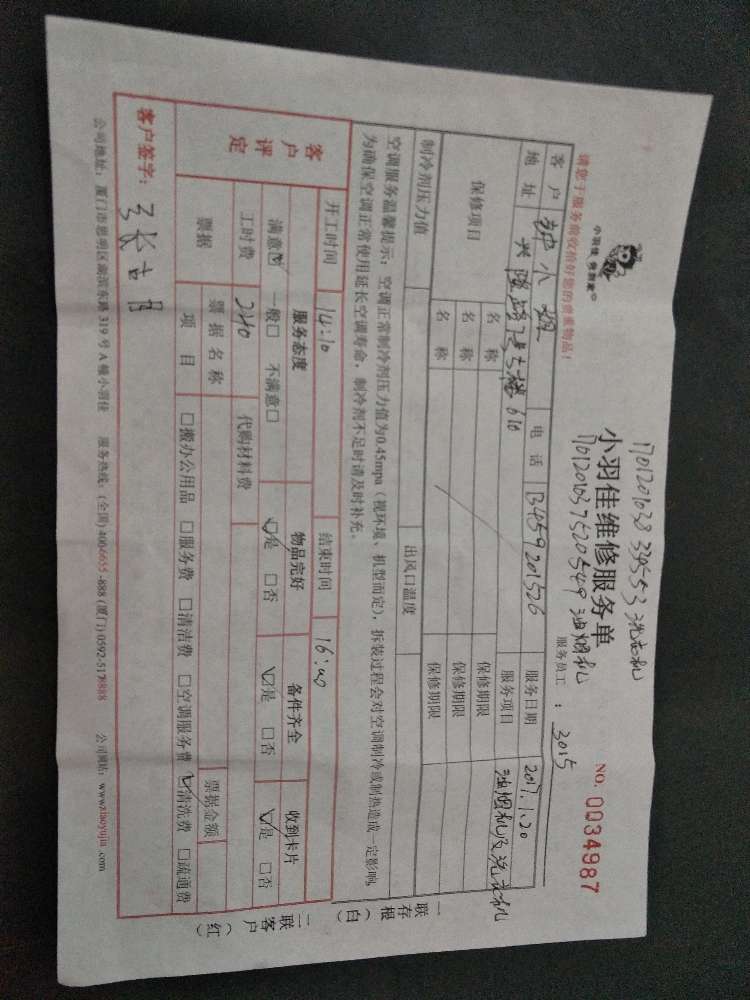 1701201038334553洗衣机
1701201037520549油烟机
小羽佳 袋洞家
小羽佳维修服务单
NO. 0034987
请您于服务前收拾好您的贵重物品！
服务员工：3015
客户 钟小姐 电话 13459201526 服务日期 2017.1.20
地址 兴隆路 号5楼610 服务项目 油烟机及洗衣机
保修项目 名称 保修期限
名称 保修期限
名称 保修期限
制冷剂压力值 出风口温度
空调服务温馨提示：空调正常制冷剂压力值为0.45mpa（视环境、机型而定），拆装过程会对空调制冷或制热造成一定影响，
为确保空调正常使用延长空调寿命，制冷剂不足时请及时补充。
开工时间 14:10 结束时间 16:00
客户评定 服务态度 物品完好 备件齐全 收到卡片
满意☑ 一般□ 不满意□ ☑是 □否 ☑是 □否 ☑是 □否
工时费 240 代购材料费
票据 票据名称 票据金额
项目 □搬办公用品 □服务费 □清洁费 □空调服务费 ☑清洗费 □疏通费
客户签字：
公司地址：厦门市思明区 东路319号A幢小羽佳 服务热线：(全国)4004655-888 (厦门)0592-5178888 公司网站：www.xiaoyujia.com
一联存根（白）
二联客户（红）